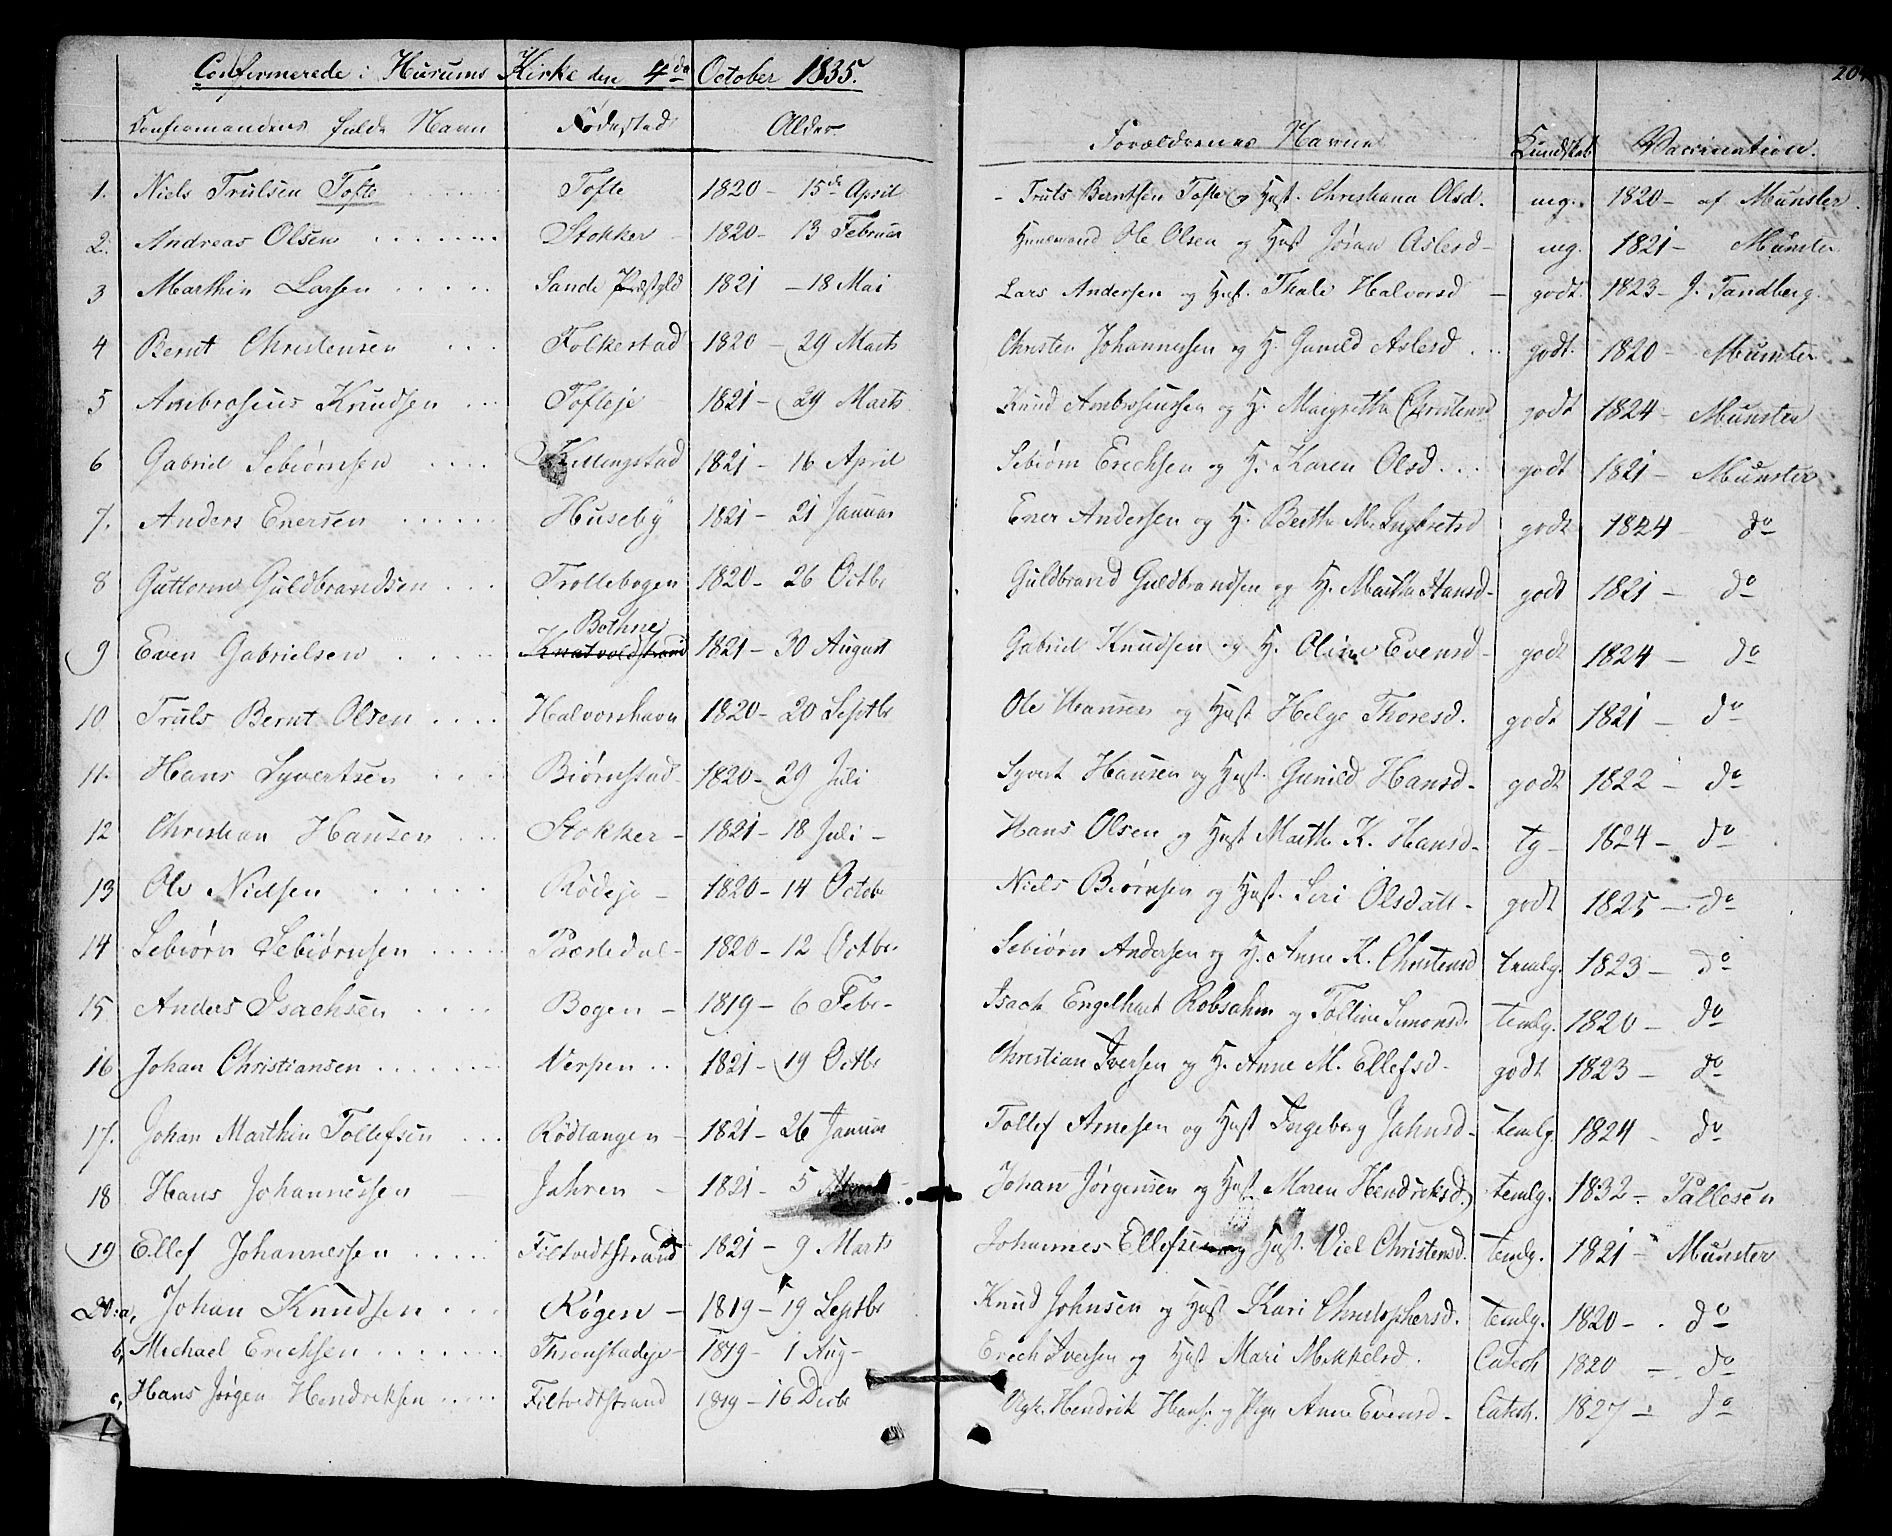 Confirmerede i Hurums Kirke den 4de October 1835. 204
Confirmandens fulde Navn Fødested Alder Forældrenes Navne Kundskab Vaccination.
1. Niels Trulsen Tofte Tofte 1820 - 15de April - Truls Berntsen Tofte og Hust. Christiana Olsd. mg. 1820 - af Munster.
2. Andreas Olsen Stokker - 1820 - 13 Februar Huusmand Ole Olsen og Hust Jøran Aslesd - mg. 1821 - Munster
3 Marthin Larsen Sande Præstgld 1821 - 18 Mai Lars Andersen og Hust. Thale Halvorsd - godt. 1823 - J. Tandberg.
4 Bernt Christensen Folkestad 1820 - 29 Marts Christen Johannessen og H. Gunild Aslesd godt. 1820 - Munster
5 Ambrosius Knudsen Tofteje 1821 - 29 Marts Knud Ambrosiussen og H. Margretha Christensd godt 1824 - Munster
6 Gabriel Sebiørnsen Killingstad 1821 - 16 April Sebiørn Erichsen og H. Karen Olsd godt 1821 - Munster
7. Anders Enersen Huseby 1821 - 21 Januar Ener Andersen og H. Berthe M. Ingbretsd godt 1824 do
8 Guttorm Guldbrandsen Trollebogen 1820 - 26 Octbr Guldbrand Guldbrandsen og H. Martha Hansd - godt 1821 - do
9 Even Gabrielsen Bothne Knatvoldstrand 1821 - 30 August Gabriel Knudsen og H. Oline Evensd - godt 1824 - do
10 Truls Bernt Olsen Halvorshavn 1820 - 20 Septbr Ole Hansen og Hust Helge Thoresd. godt 1821 - do
11. Hans Syvertsen Biørnstad - 1820 - 29 Juli Syvert Hansen og Hust. Gunild Hansd - godt 1822 - do
12 Christian Hansen Stokker - 1821 - 18 Juli - Hans Olsen og Hust Marthe K. Hansd - tg - 1824 - do
13 Ole Nielsen Rødeje - 1820 - 14 Octobr Niels Biørnsen og Hust. Siri Olsdatt - godt 1825 - do
14 Sebiørn Sebiørnsen Præstedal - 1820 - 12 Octbr Sebiørn Andersen og H. Anne K. Christensd temlg. 1823 - do
15 Anders Isachsen Bogen - 1819 - 6 Febr - Isach Engelhart Robsahm og Tolline Simonsd. temlg. 1820 - do
16 Johan Christiansen Verpen 1821 - 19 Octbr Christian Iversen og H. Anne M. Ellefsd - godt 1823 - do
17. Johan Marthin Tollefsen Rødtangen - 1821 - 26 Januar Tollef Arnesen og Hust Ingeborg Jahnsd - temlg 1824 - do
18 Hans Johannessen Jahren - 1821 - 5 Johan Jørgensen og Hust Maren Hendriksd temlg. 1832 - Pallesen
19 Ellef Johannessen Filtvedtstrand 1821 - 9 Marts Johannes Ellefsen og Hust. Viel Christensd. temlg. 1821 - Munster
20. a, Johan Knudsen Røgen - 1819 - 19 Septbr Knud Johnsen og Hust Kari Christophersd. temlg. 1820 - do
b, Michael Erichsen Thronstadeje - 1819 - 1 Aug - Erich Iversen og Hust Mari Mikkelsd. Catech 1820 - do
c, Hans Jørgen Hendriksen Filtvedtstrand 1819 - 16 Decbr Ugk. Hendrik Hans. og Pige Anne Evensd - Catech. 1827 - do